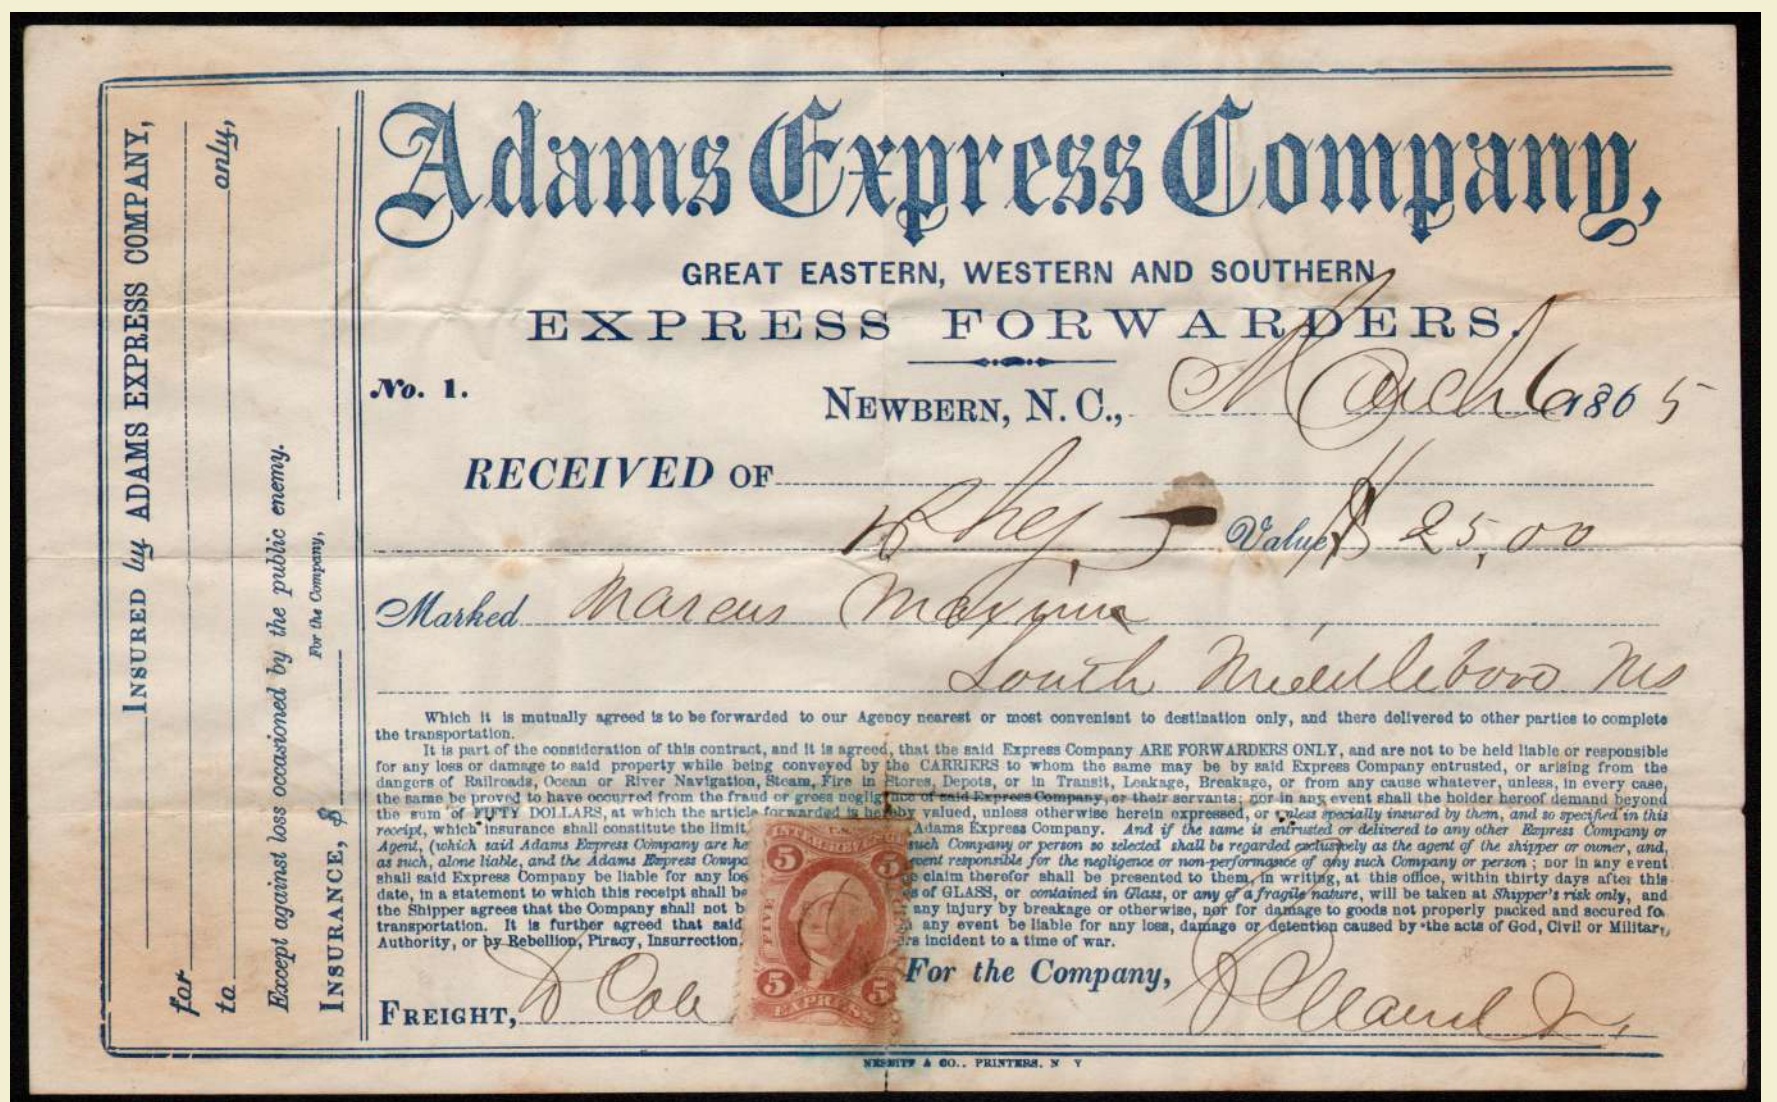 Adams Express Company,
GREAT EASTERN, WESTERN AND SOUTHERN
EXPRESS FORWARDERS.
No. 1.
NEWBERN, N. C., March 6 1865
RECEIVED OF
Value $ 25,00
Marked Marcus Maxim
South Middleboro Ms
Which it is mutually agreed is to be forwarded to our Agency nearest or most convenient to destination only, and there delivered to other parties to complete
the transportation.
It is part of the consideration of this contract, and it is agreed, that the said Express Company ARE FORWARDERS ONLY, and are not to be held liable or responsible
for any loss or damage to said property while being conveyed by the CARRIERS to whom the same may be by said Express Company entrusted, or arising from the
dangers of Railroads, Ocean or River Navigation, Steam, Fire in Stores, Depots, or in Transit, Leakage, Breakage, or from any cause whatever, unless, in every case,
the same be proved to have occurred from the fraud or gross negligence of said Express Company, or their servants; nor in any event shall the holder hereof demand beyond
the sum of FIFTY DOLLARS, at which the article forwarded is hereby valued, unless otherwise herein expressed, or unless specially insured by them, and so specified in this
receipt, which insurance shall constitute the limit Adams Express Company. And if the same is entrusted or delivered to any other Express Company or
Agent, (which said Adams Express Company are he such Company or person so selected shall be regarded exclusively as the agent of the shipper or owner, and,
as such, alone liable, and the Adams Express Compa event responsible for the negligence or non-performance of any such Company or person; nor in any event
shall said Express Company be liable for any los claim therefor shall be presented to them, in writing, at this office, within thirty days after this
date, in a statement to which this receipt shall be of GLASS, or contained in Glass, or any of a fragile nature, will be taken at Shipper's risk only, and
the Shipper agrees that the Company shall not b any injury by breakage or otherwise, nor for damage to goods not properly packed and secured fo
transportation. It is further agreed that said any event be liable for any loss, damage or detention caused by the acts of God, Civil or Military
Authority, or by Rebellion, Piracy, Insurrection rs incident to a time of war.
FREIGHT,
For the Company,
NESBITT & CO., PRINTERS, N Y
INSURED by ADAMS EXPRESS COMPANY,
for
to only,
Except against loss occasioned by the public enemy.
For the Company,
INSURANCE, $
U.S. INTER. REVENUE
5 5
FIVE
5 5
EXPRESS